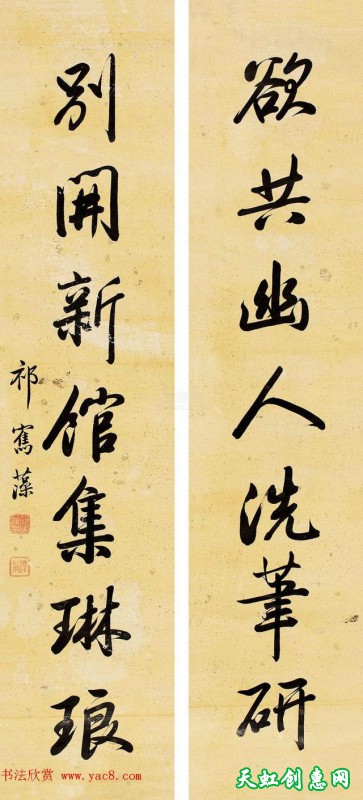 欲共幽人洗筆研
別開新館集琳琅
祁寯藻
书法欣赏 www.yac8.com
天虹创惠网